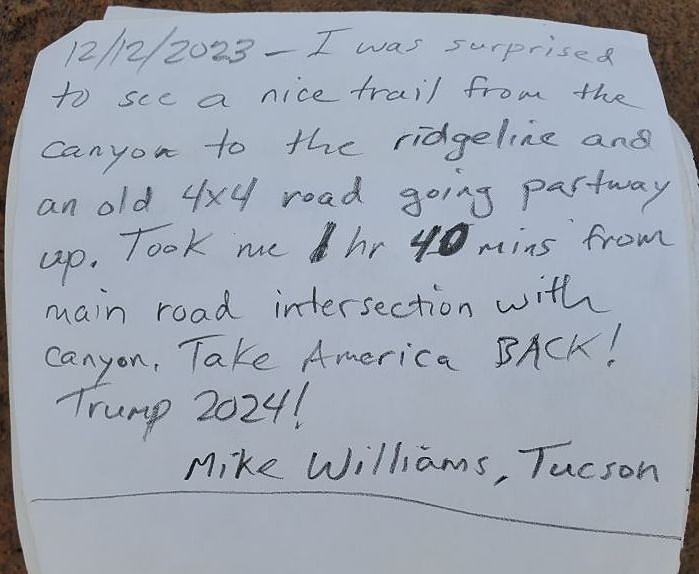 12/12/2023 - I was surprised
to see a nice trail from the
canyon to the ridgeline and
an old 4x4 road going partway
up. Took me 1 hr 40 mins from
main road intersection with
canyon. Take America BACK!
Trump 2024!
Mike Williams, Tucson